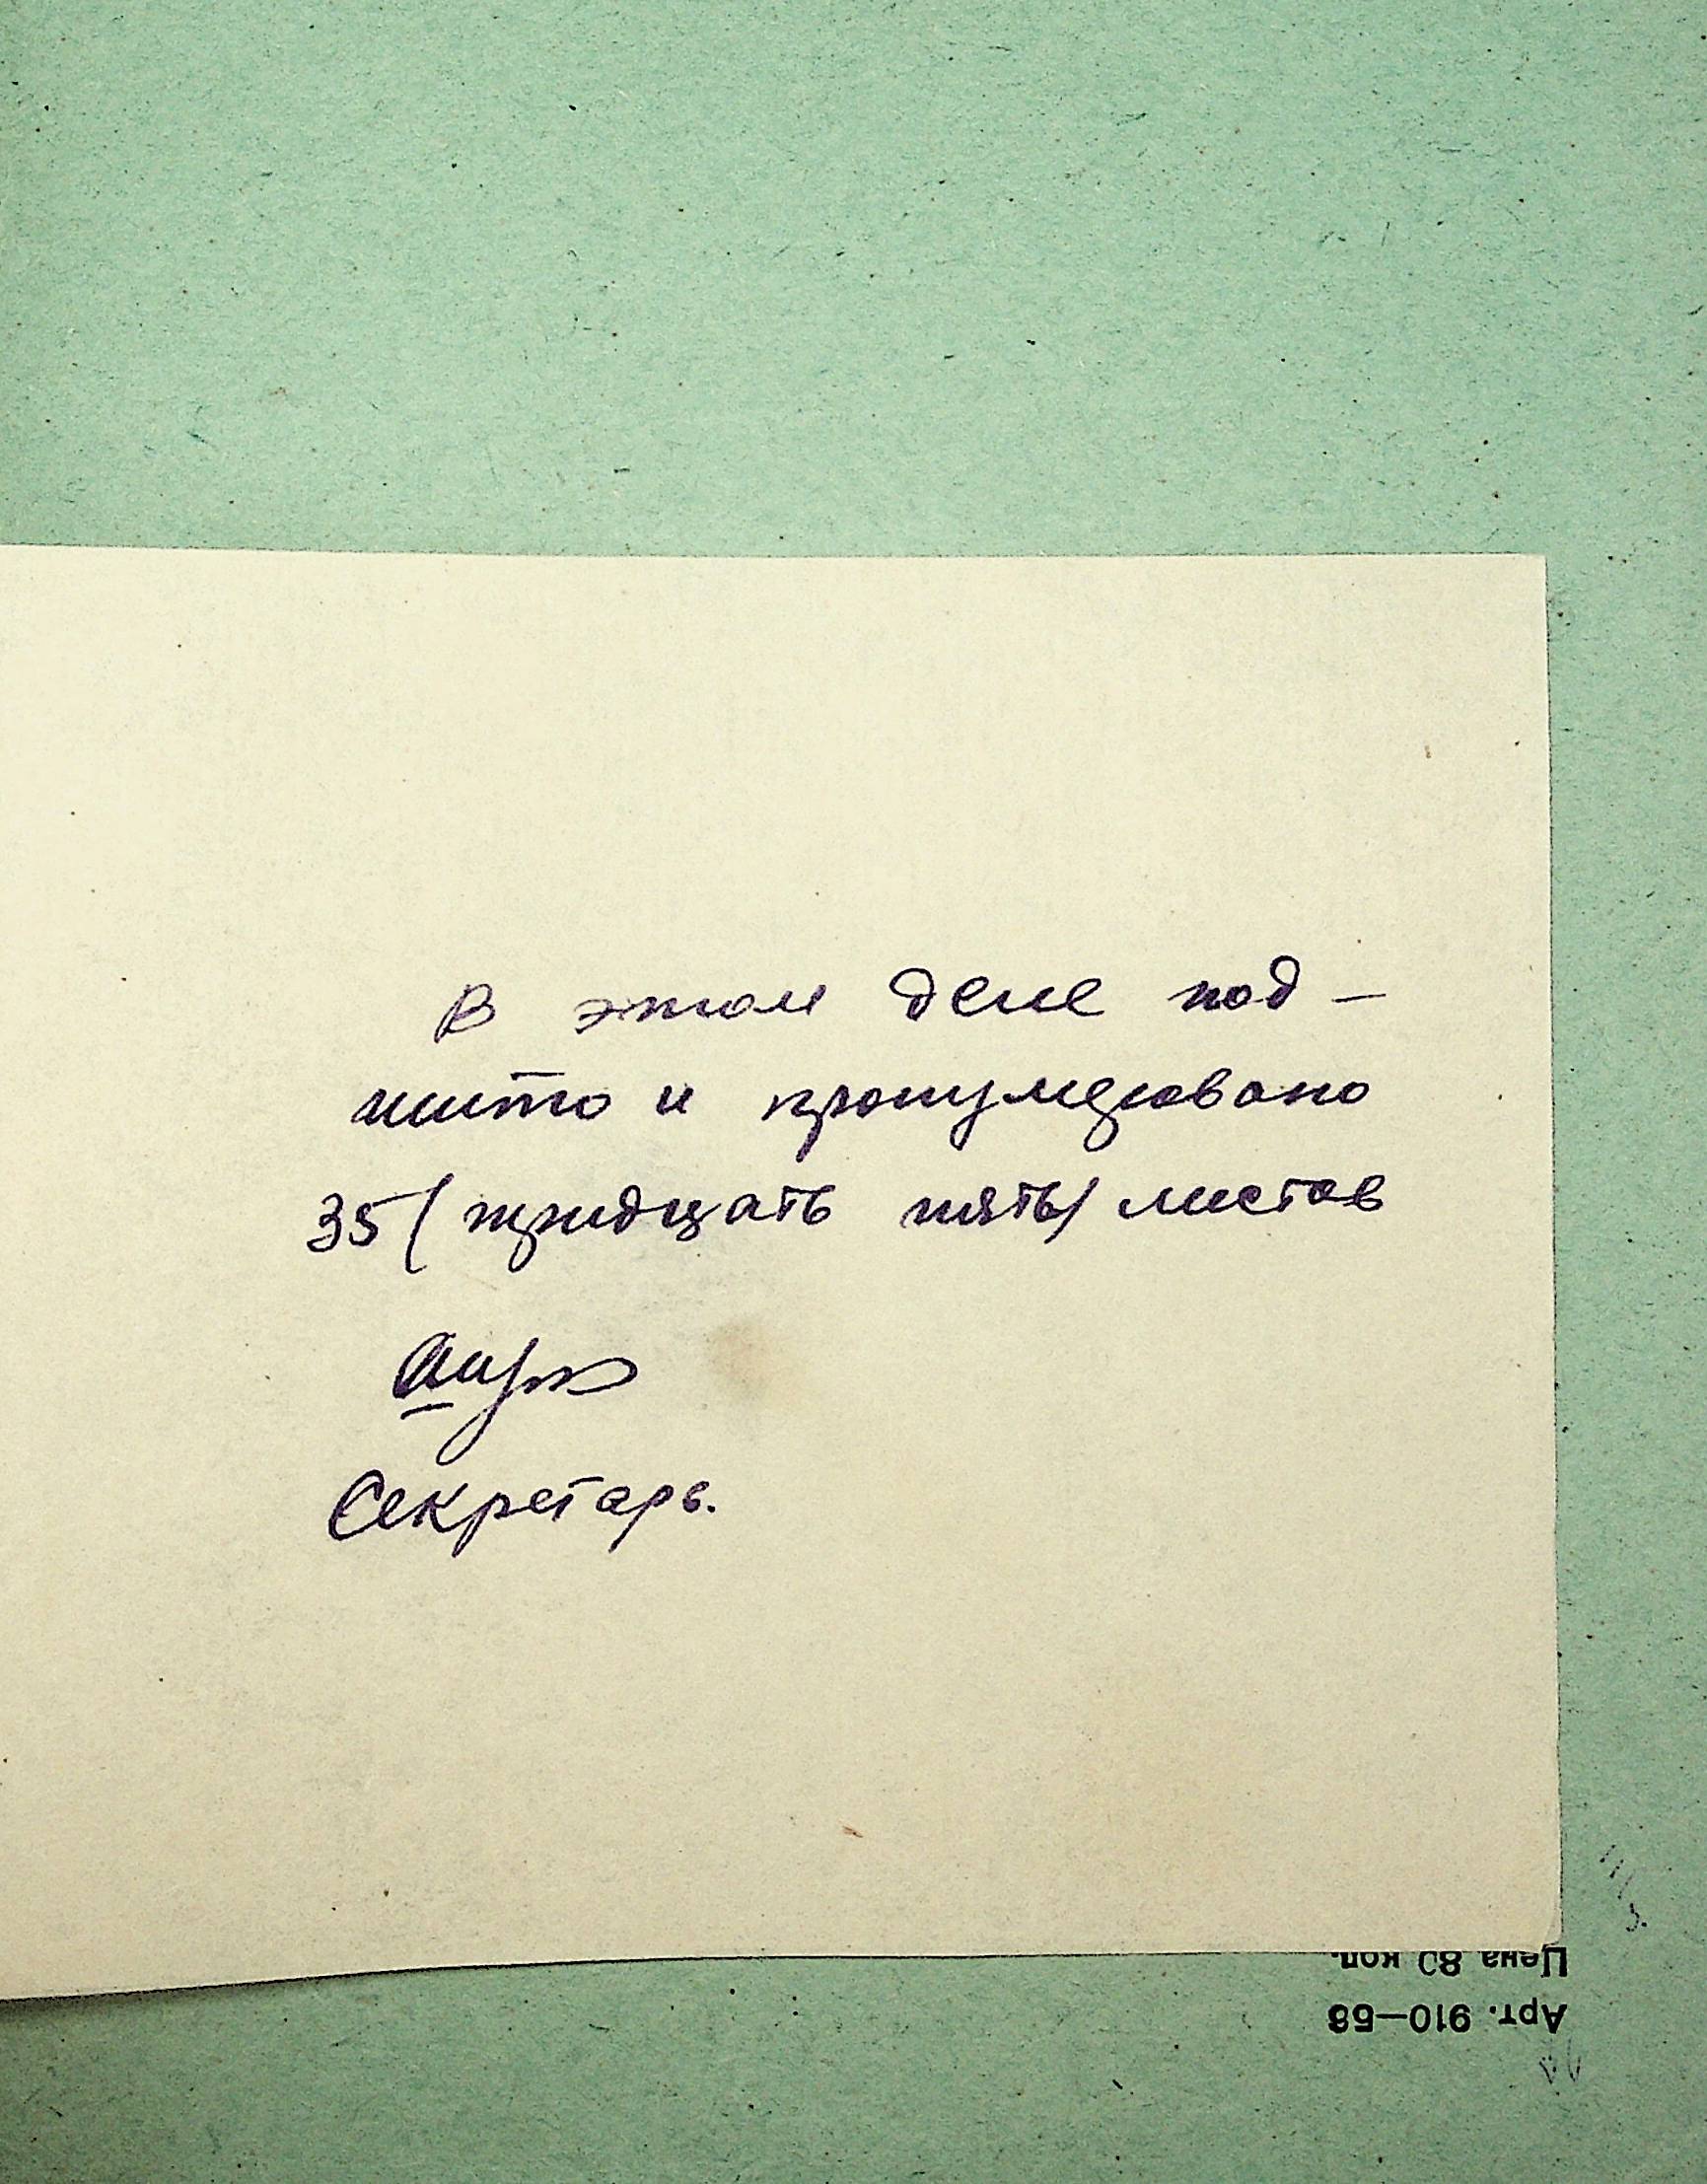 В этом деле под-
шито и пронумеровано
35 (тридцать пять) листов
Секретарь.
Цена 80 коп.
Арт. 910—58